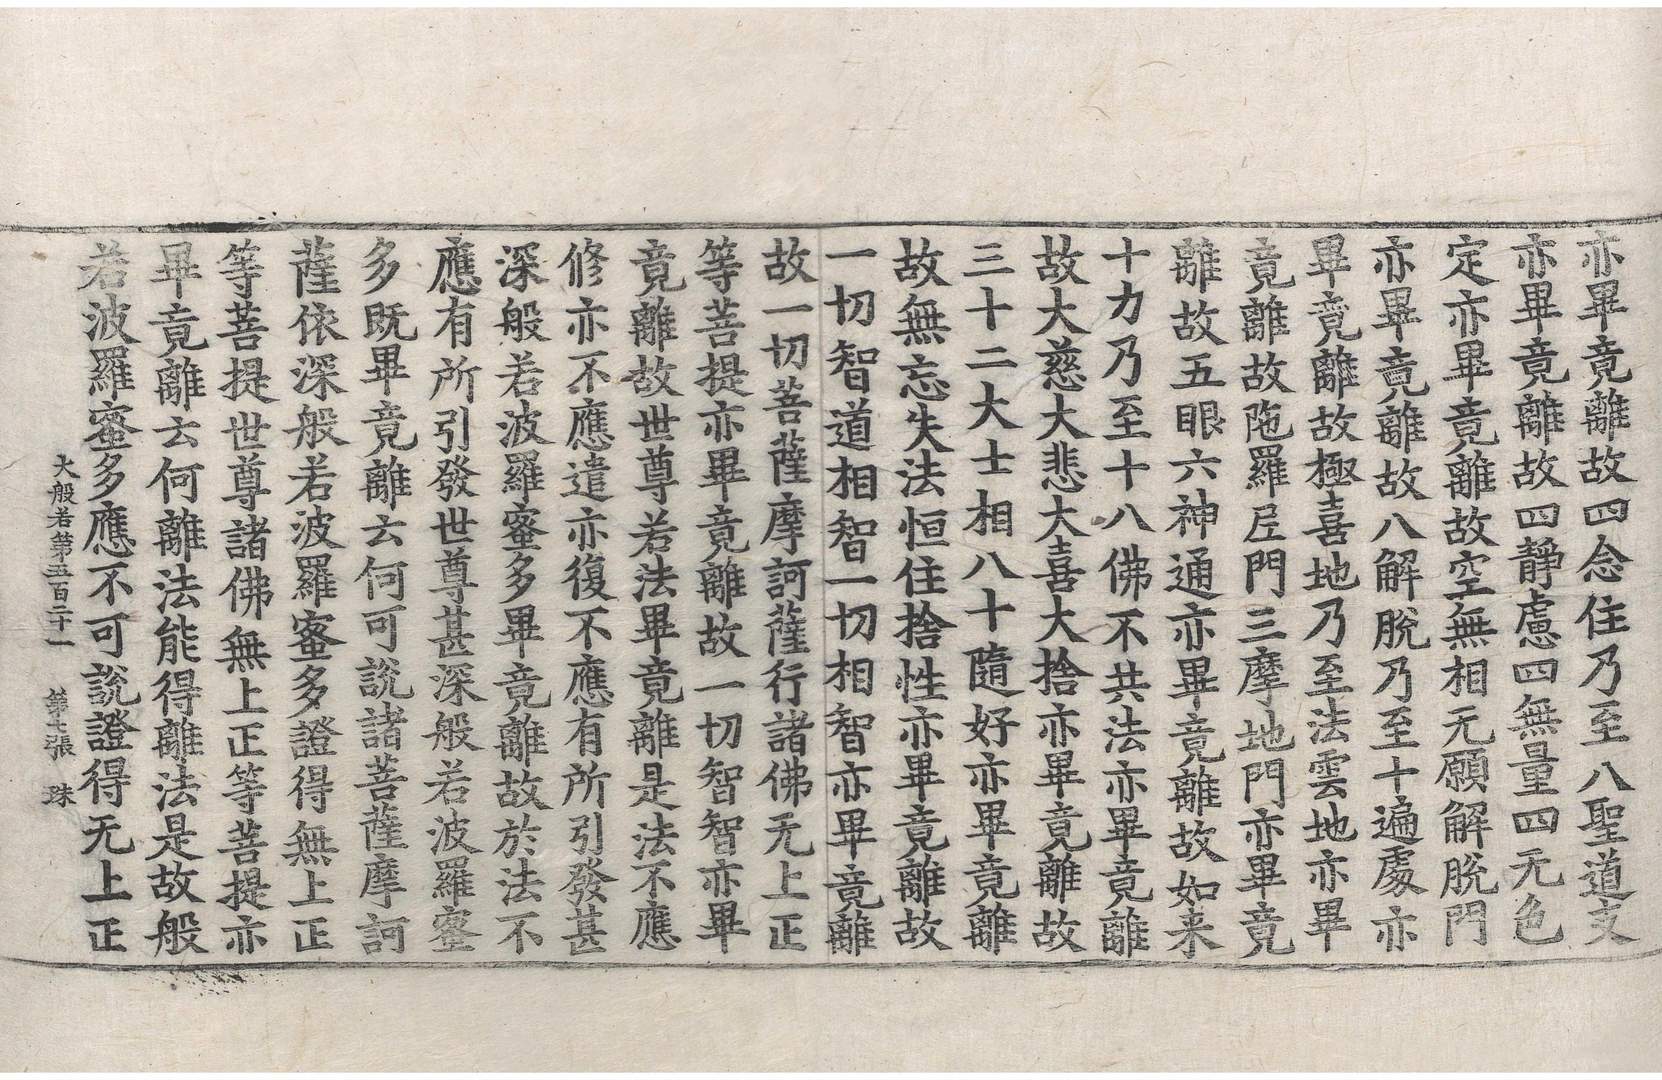 亦畢竟離故四念住乃至八聖道支
亦畢竟離故四靜慮四無量四无色
定亦畢竟離故空無相无願解脫門
亦畢竟離故八解脫乃至十遍處亦
畢竟離故極喜地乃至法雲地亦畢
竟離故陁羅尼門三摩地門亦畢竟
離故五眼六神通亦畢竟離故如来
十力乃至十八佛不共法亦畢竟離
故大慈大悲大喜大捨亦畢竟離故
三十二大士相八十隨好亦畢竟離
故無忘失法恒住捨性亦畢竟離故
一切智道相智一切相智亦畢竟離
故一切菩薩摩訶薩行諸佛无上正
等菩提亦畢竟離故一切智智亦畢
竟離故世尊若法畢竟離是法不應
修亦不應遣亦復不應有所引發甚
深般若波羅蜜多畢竟離故於法不
應有所引發世尊甚深般若波羅蜜
多既畢竟離云何可說諸菩薩摩訶
薩依深般若波羅蜜多證得無上正
等菩提世尊諸佛無上正等菩提亦
畢竟離云何離法能得離法是故般
若波羅蜜多應不可說證得无上正
大般若第五百二十一 第七張 珠